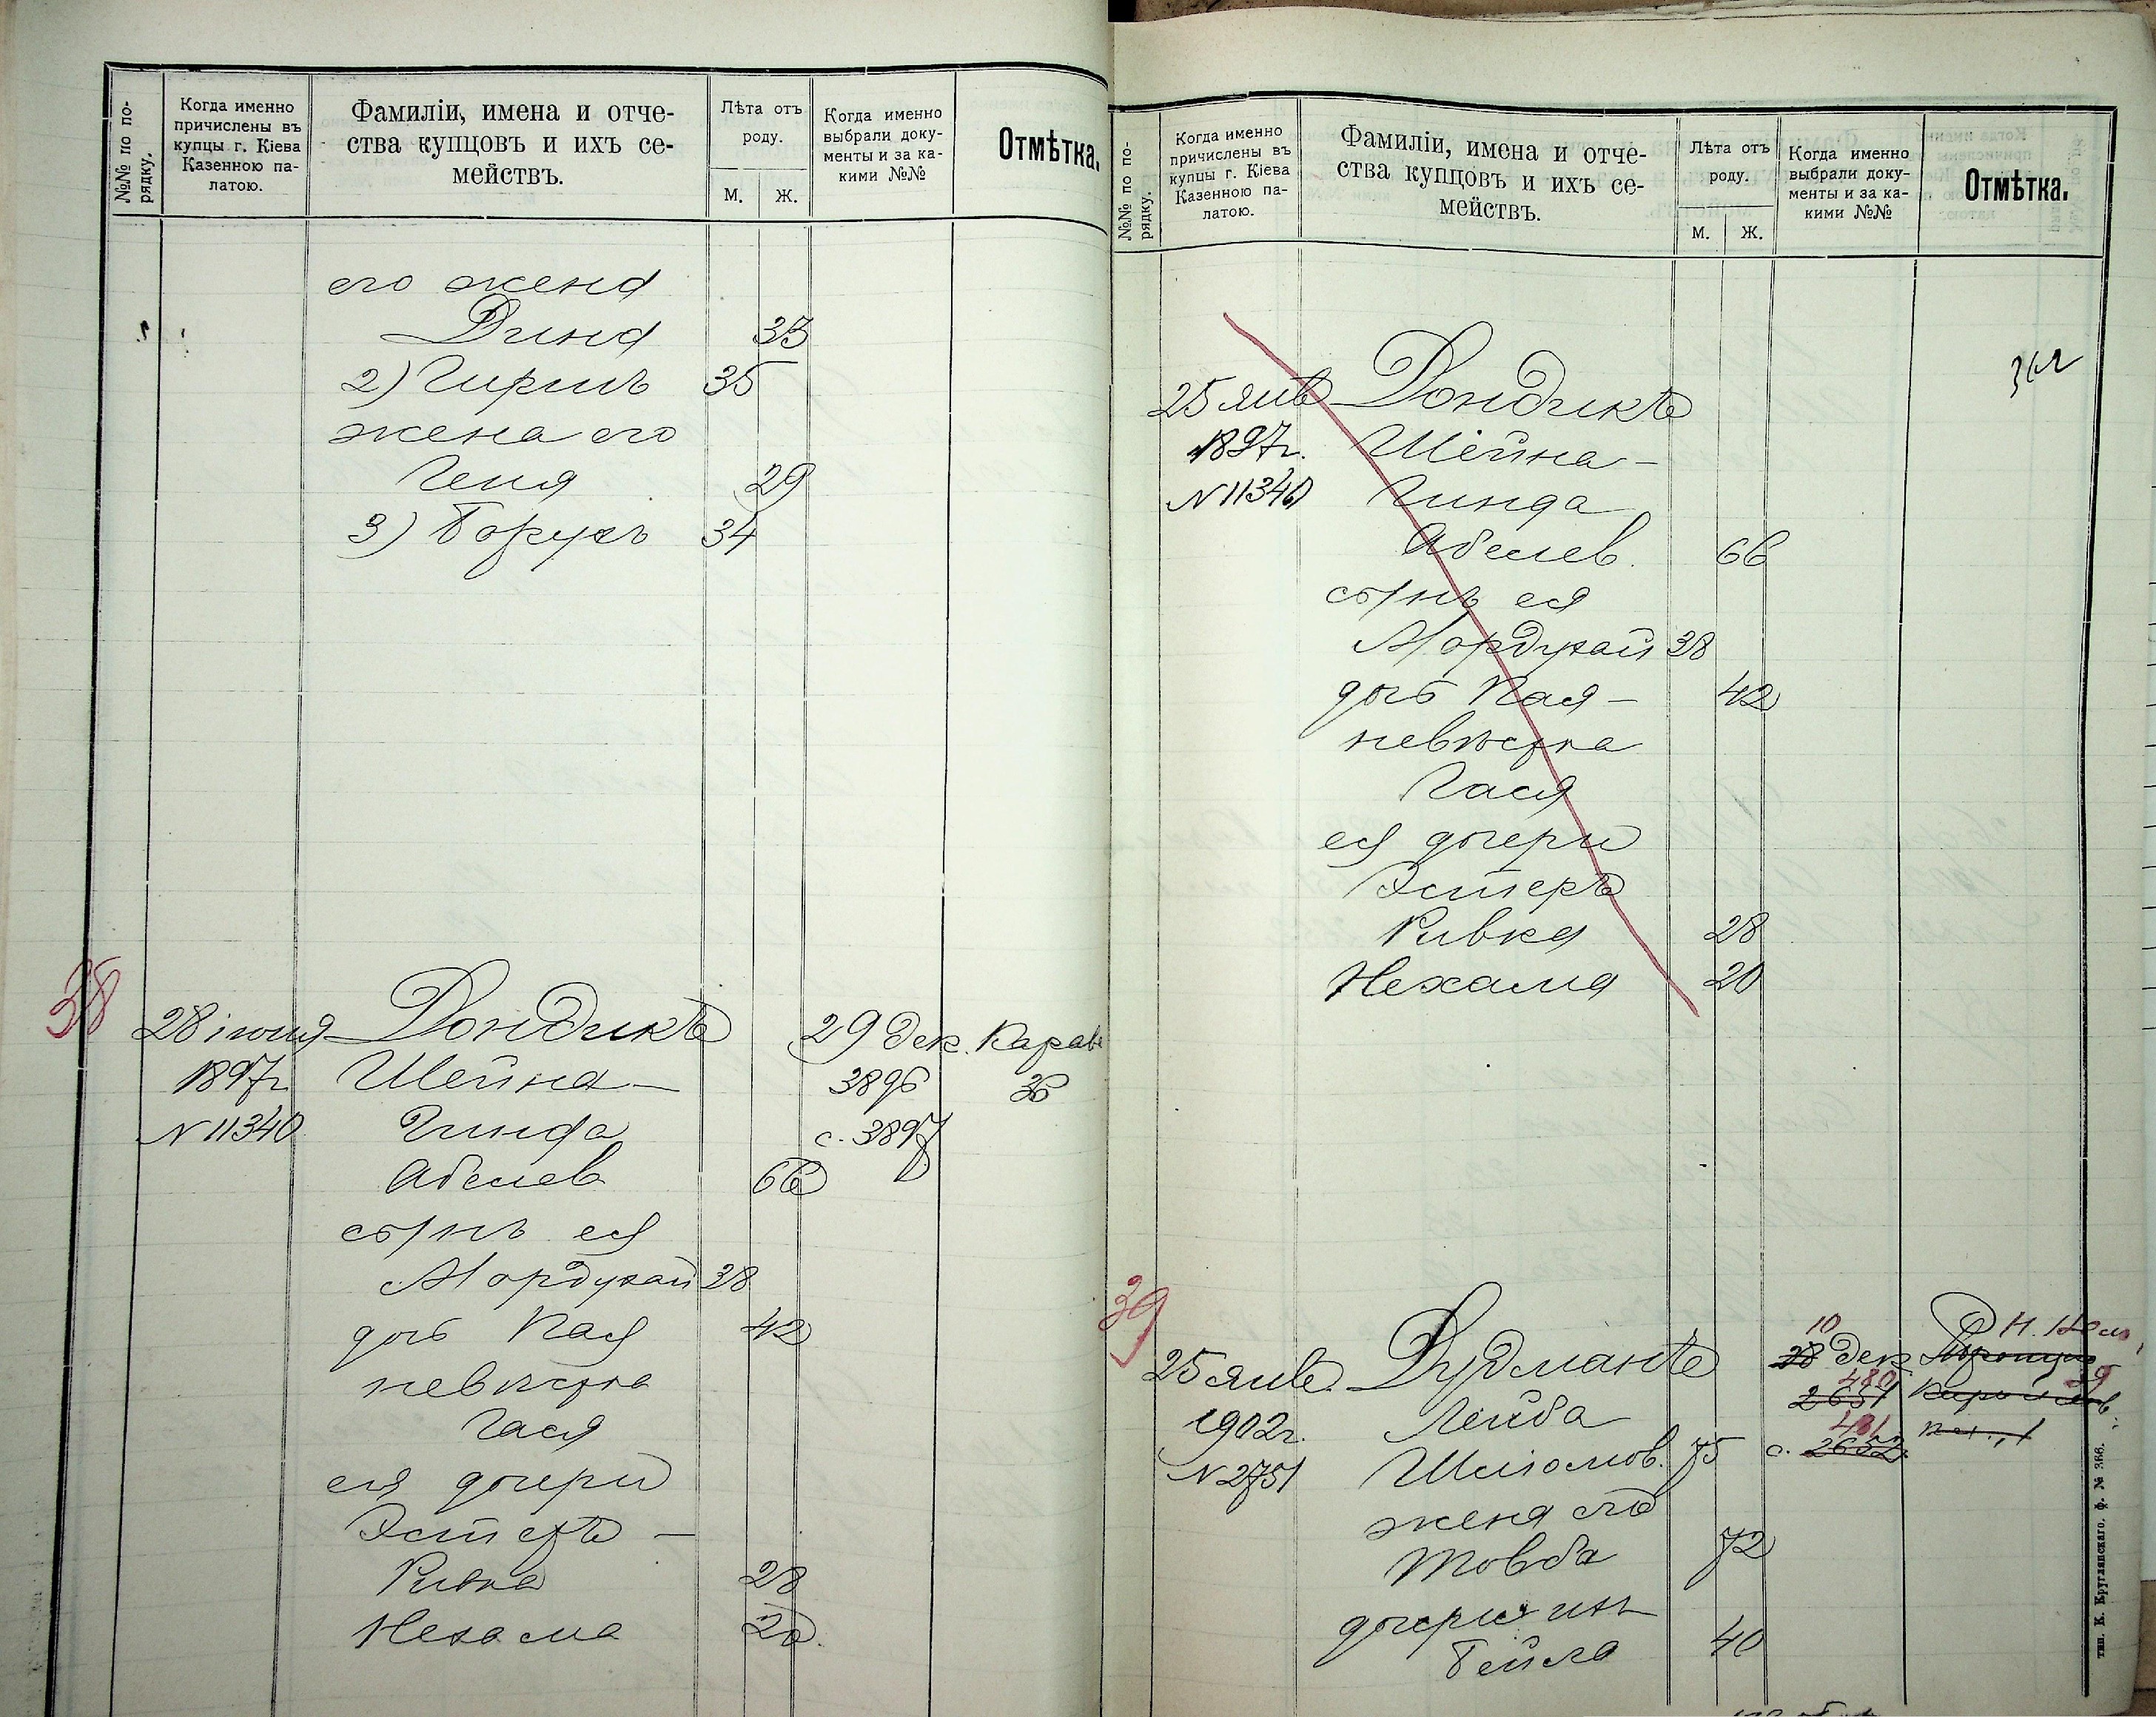 №№ по по-
рядку.
Когда именно
причислены въ
купцы г. Кіева
Казенною па-
латою.
Фамиліи, имена и отче-
ства купцовъ и ихъ се-
мействъ.
Лѣта отъ
роду.
М. Ж.
Когда именно
выбрали доку-
менты и за ка-
кими №№
Отмѣтка.
его жена
Дина 33
2) Гиршъ 35
жена его
Геня 29
3) Борухъ 34
38
28 іюня Дондикъ 29 дек. Карав
1897г. Шейна- 3896 36
N 11340 Гинда с. 3897
Абелев 66
сынъ ея
Мордухай 38
дочь Пая 42
невѣстка
Гася
ея дочери
Эстеръ -
Ривка 28
Нехама 20.
№№ по по-
рядку.
Когда именно
причислены въ
купцы г. Кіева
Казенною па-
латою.
Фамиліи, имена и отче-
ства купцовъ и ихъ се-
мействъ.
Лѣта отъ
роду.
М. Ж.
Когда именно
выбрали доку-
менты и за ка-
кими №№
Отмѣтка.
25 янв Дондикъ
1897г. Шейна-
N 11340 Гинда
Абелев. 66
сынъ ея
Мордухай 38
дочь Пая - 42
невѣстка
Гася
ея дочери
Эстеръ
Ривка 28
Нехама 20
39
10
25 янв. Дудманъ 28 дек
480 39
1902г. Лейба 2651
481
N 2751 Шліомов. 75 с. 2652
жена его
Товба 72
дочери ихъ
Бейла 40
тип. К. Круглянскаго. ф. № 366.